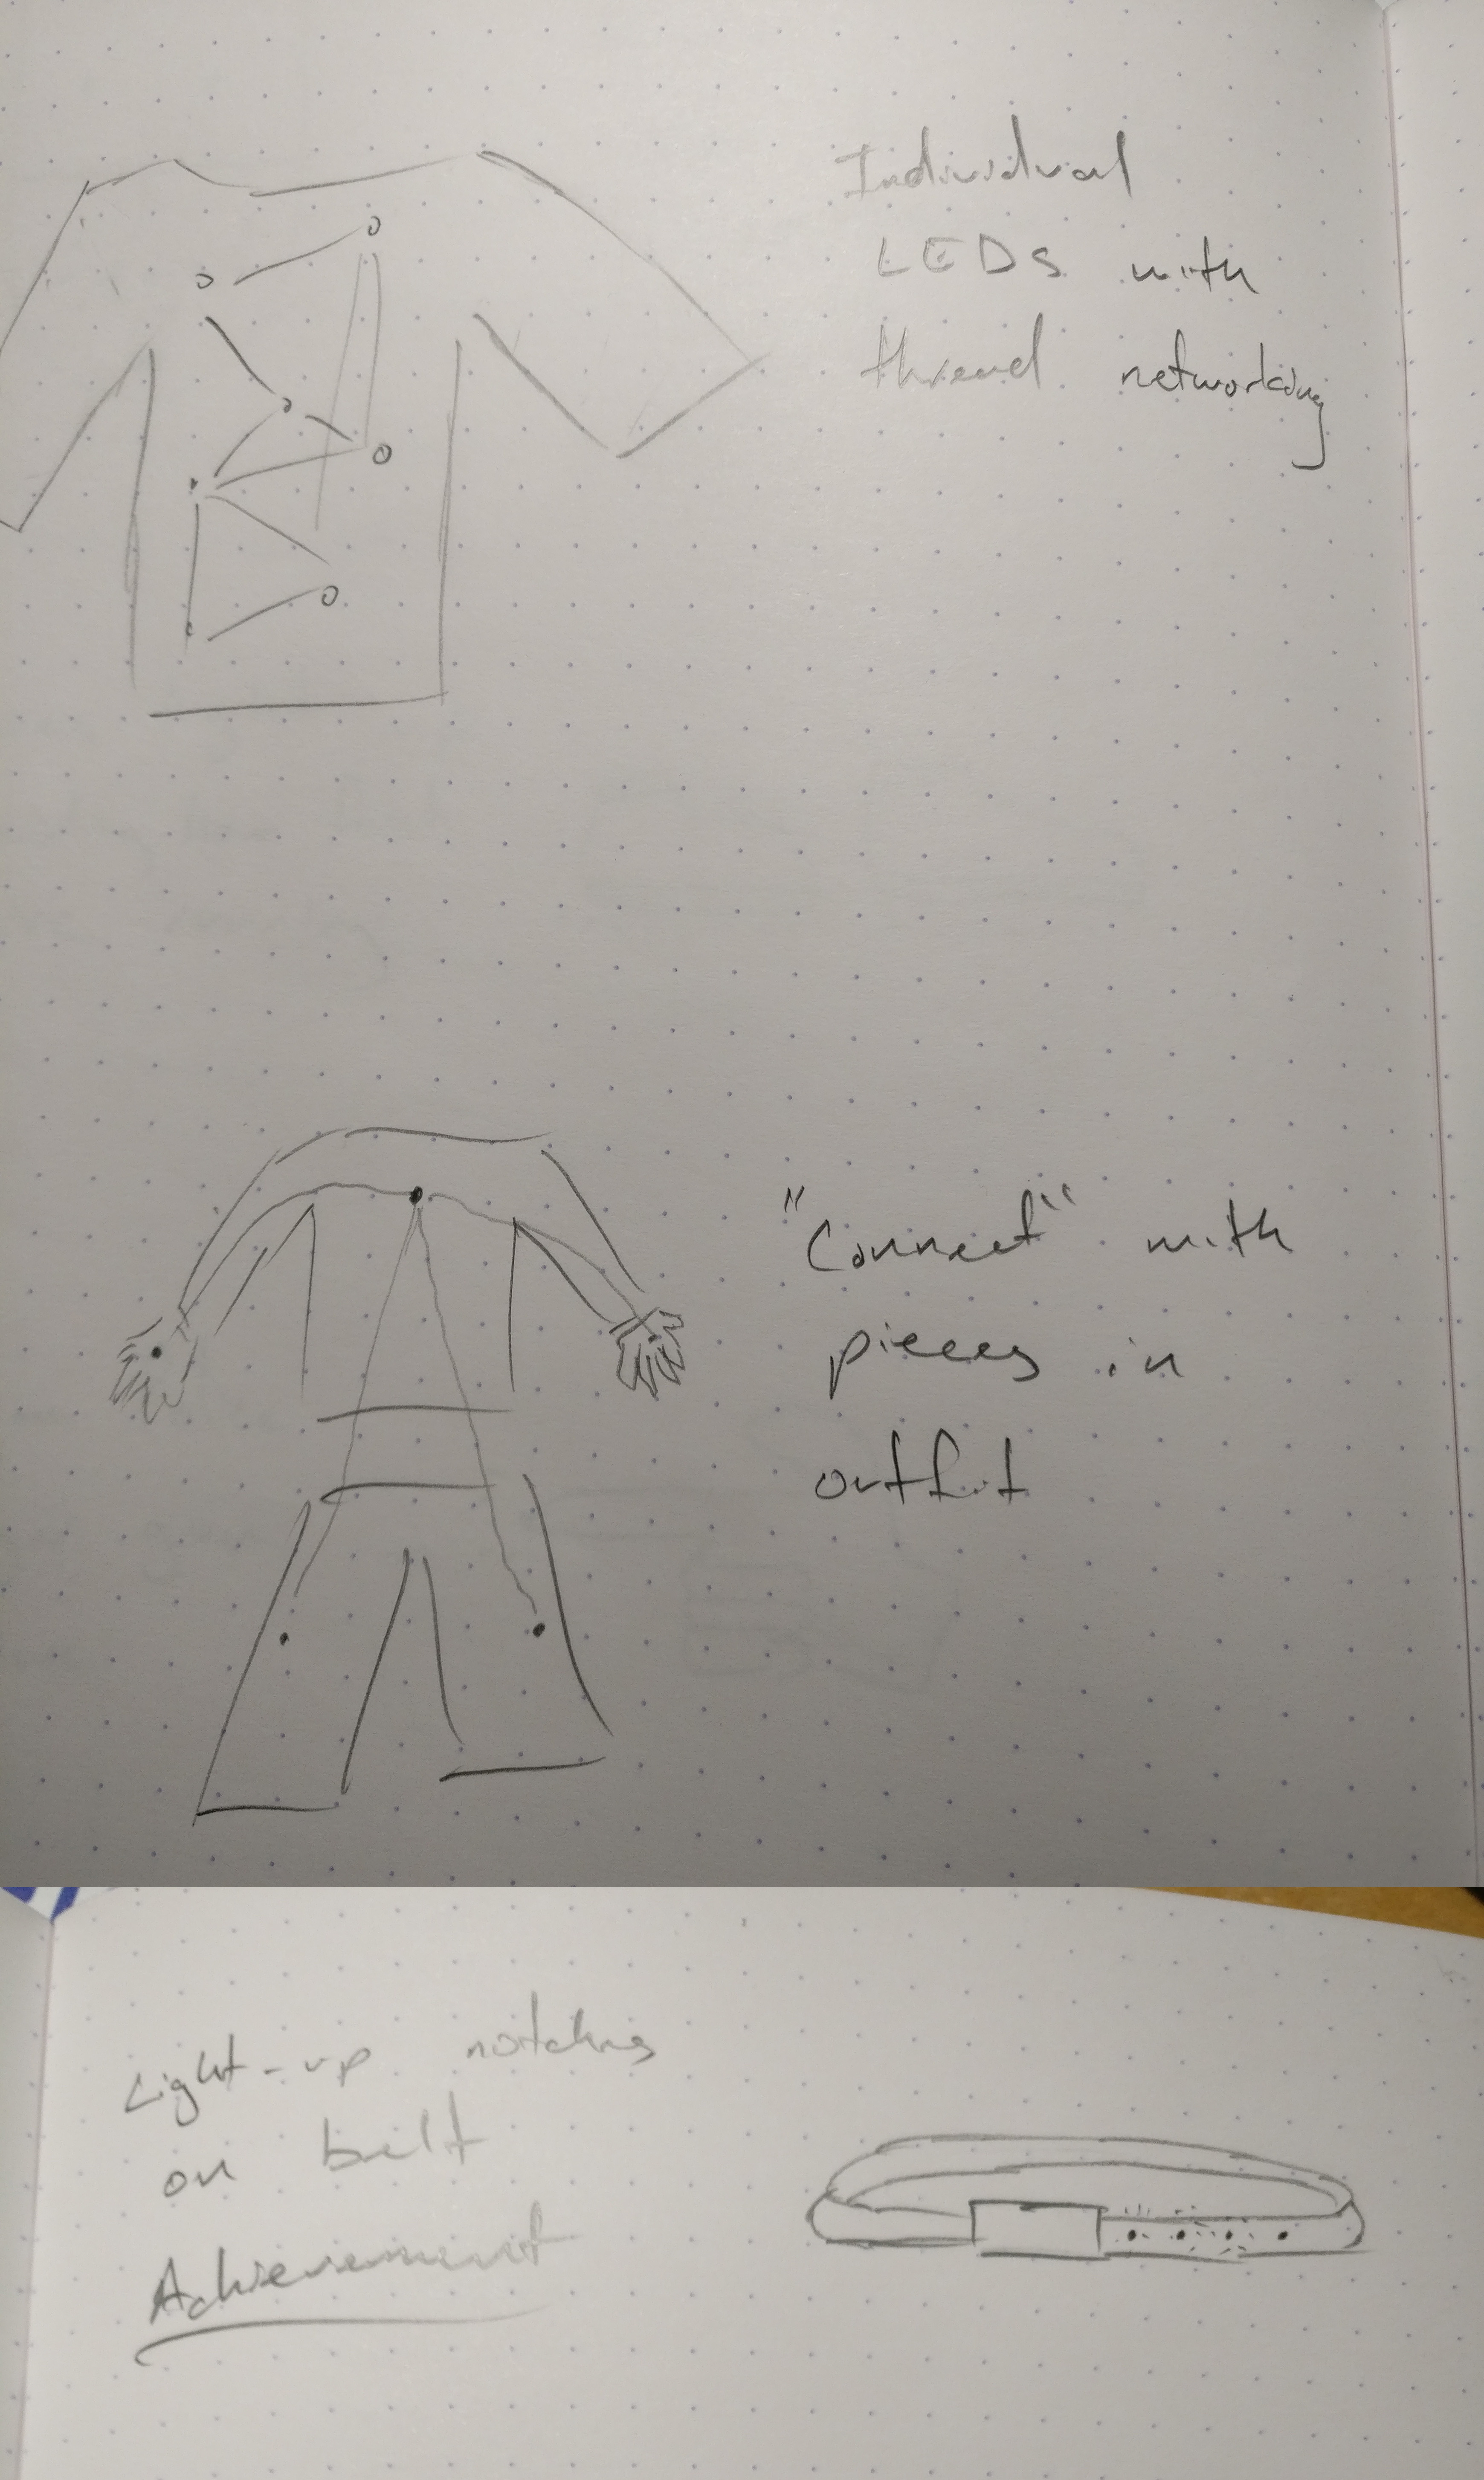 Individual
LEDs with
thread networking
"Connect" with
pieces in
outfit
Light-up notches
on belt
Achievement